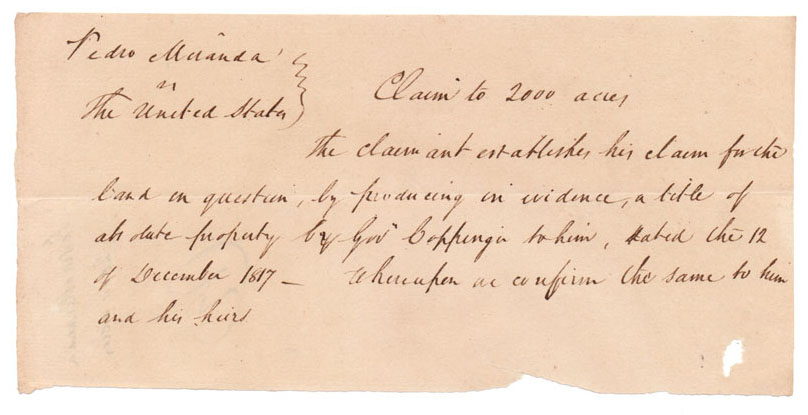 Pedro Miranda
vs
The United States
Claim to 2000 acres
The claimant establishes his claim for the
land in question, by producing in evidence, a title of
absolute property by Govr Coppinger to him, dated the 12
of December 1817 — Whereupon we confirm the same to him
and his heirs